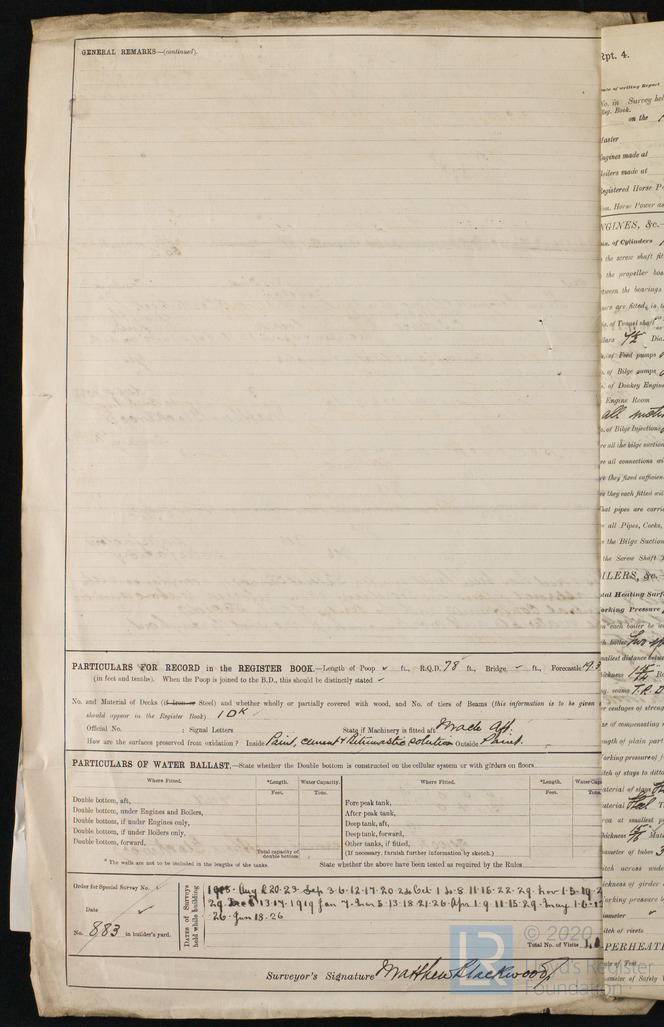 GENERAL REMARKS—(continued).
PARTICULARS FOR RECORD in the REGISTER BOOK.—Length of Poop ✓ ft., R.Q.D. 78 ft., Bridge - ft., Forecastle 19.3
(in feet and tenths). When the Poop is joined to the B.D., this should be distinctly stated -
No. and Material of Decks (if Iron or Steel) and whether wholly or partially covered with wood, and No. of tiers of Beams (this information is to be given
should appear in the Register Book) 1 DK
Official No. ; Signal Letters State if Machinery is fitted aft Made Aft.
How are the surfaces preserved from oxidation? Inside Paint, cement & Bitumastic solution Outside Paint.
PARTICULARS OF WATER BALLAST.—State whether the Double bottom is constructed on the cellular system or with girders on floors
Where Fitted. *Length. Water Capacity. Where Fitted. *Length.
Feet. Tons. Feet. Tons.
Double bottom, aft,
Double bottom, under Engines and Boilers,
Double bottom, if under Engines only,
Double bottom, if under Boilers only,
Double bottom, forward,
Total capacity of double bottom
Fore peak tank,
After peak tank,
Deep tank, aft,
Deep tank, forward,
Other tanks, if fitted,
(If necessary, furnish further information by sketch.)
* The walls are not to be included in the lengths of the tanks.
State whether the above have been tested as required by the Rules
Order for Special Survey No.
Date ✓
No. 883 in builder's yard.
DATES of Surveys held while building
Aug 20-23- Sep 3-6-12-17-20-24 Oct 8-11-15-22-29-Nov 1-5-19-2
29- Dec 13-17-1919 Jan 7- 5-13-18-21-26-Apr 1-9-11-15-29-May 1-6-1
26-Jun 18-26
Total No. of Visits
Surveyor's Signature Matthew Blackwood
Rpt. 4.
Date of writing Report
No. in Survey hel
Reg. Book.
on the
Master
Engines made at
Boilers made at
Registered Horse P
Nom. Horse Power as
ENGINES, &c.—
Dia. of Cylinders
the screw shaft fit
the propeller bos
between the bearings
of Tunnel shaft
Dia.
of Feed pumps
of Bilge pumps
of Donkey Engine
Engine Room
of Bilge Injections
are all the bilge suction
are all connections wi
are they fixed sufficien
are they each fitted wit
What pipes are carrie
all Pipes, Cocks,
the Bilge Suction
the Screw Shaft
BOILERS, &c.—
Total Heating Surf
Working Pressure
each boiler be wo
smallest distance betwe
percentages of streng
size of compensating
length of plain part
working pressure of
pitch of stays to ditto
material of stays
material Steel
area at smallest p
diameter of tubes 3
pitch across wide
thickness of girder
diameter
pitch of rivets
SUPERHEATE
Date of Test
Diameter of Safety
© 2020
LR
Lloyd's Register
Foundation